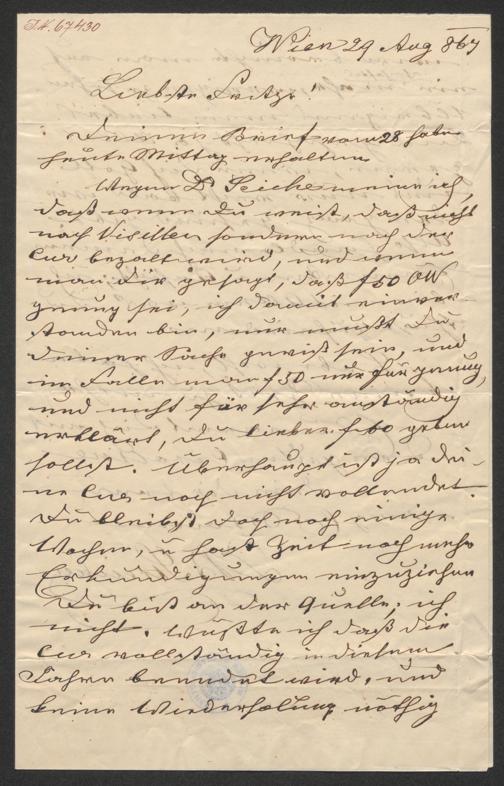 I.N. 67430
Wien 29 Aug 867
Liebste Fritzi!
Deinen Brief vom 28 habe
heute Mittag erhalten
Wegen Dr meine ich,
daß wenn Du weist, daß nicht
nach Visitten sondern nach der
Cur bezalt wird, und wenn
man Dir gesagt, daß f 50 ÖW
genug sei, ich damit einver-
standen bin, nur mußt Du
deiner Sache gewiß sein, und
im Falle man f 50 nur für genug,
und nicht für sehr anständig
erklärt, Du lieber f 60 geben
sollst. Überhaupt ist ja dei-
ne Cur noch nicht vollendet.
Du bleibst doch noch einige
Wochen, u hast Zeit noch mehr
Erkundigungen einzuziehen
Du bist an der Quelle, ich
nicht. Wüßte ich daß die
Cur vollständig in diesem
Jahre beendet wird, und
keine Wiederholung nöthig